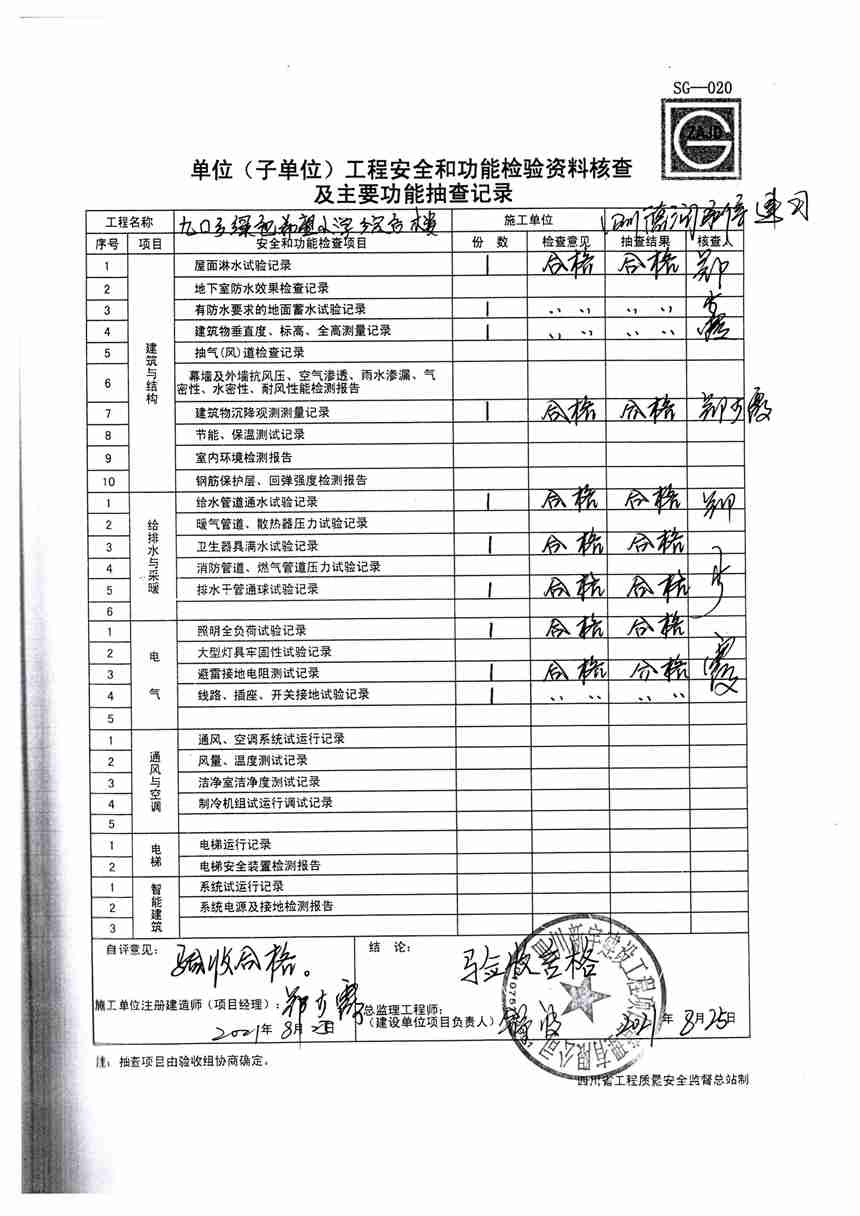 SG—020
ZAJD
单位（子单位）工程安全和功能检验资料核查
及主要功能抽查记录
工程名称 施工单位
序号 项目 安全和功能检查项目 份 数 检查意见 抽查结果 核查人
建筑与结构
1 屋面淋水试验记录 1 合格 合格 郑
2 地下室防水效果检查记录
3 有防水要求的地面蓄水试验记录 1 〃 〃
4 建筑物垂直度、标高、全高测量记录 1 〃 〃 霞
5 抽气(风)道检查记录
6 幕墙及外墙抗风压、空气渗透、雨水渗漏、气
密性、水密性、耐风性能检测报告
7 建筑物沉降观测测量记录 1 合格 合格 郑 霞
8 节能、保温测试记录
9 室内环境检测报告
10 钢筋保护层、回弹强度检测报告
给排水与采暖
1 给水管道通水试验记录 1 合格 合格 郑
2 暖气管道、散热器压力试验记录
3 卫生器具满水试验记录 1 合格 合格
4 消防管道、燃气管道压力试验记录
5 排水干管通球试验记录 1 合格 合格
6
电气
1 照明全负荷试验记录 1 合格 合格
2 大型灯具牢固性试验记录
3 避雷接地电阻测试记录 1 合格 合格 霞
4 线路、插座、开关接地试验记录 1 〃 〃
5
通风与空调
1 通风、空调系统试运行记录
2 风量、温度测试记录
3 洁净室洁净度测试记录
4 制冷机组试运行调试记录
5
电梯
1 电梯运行记录
2 电梯安全装置检测报告
智能建筑
1 系统试运行记录
2 系统电源及接地检测报告
3
自评意见： 验收合格。
结 论： 验收合格
施工单位注册建造师（项目经理）： 郑 霞
总监理工程师：
（建设单位项目负责人）
2021年 8月 日
2021年 8月25日
注：抽查项目由验收组协商确定。
四川省工程质量安全监督总站制